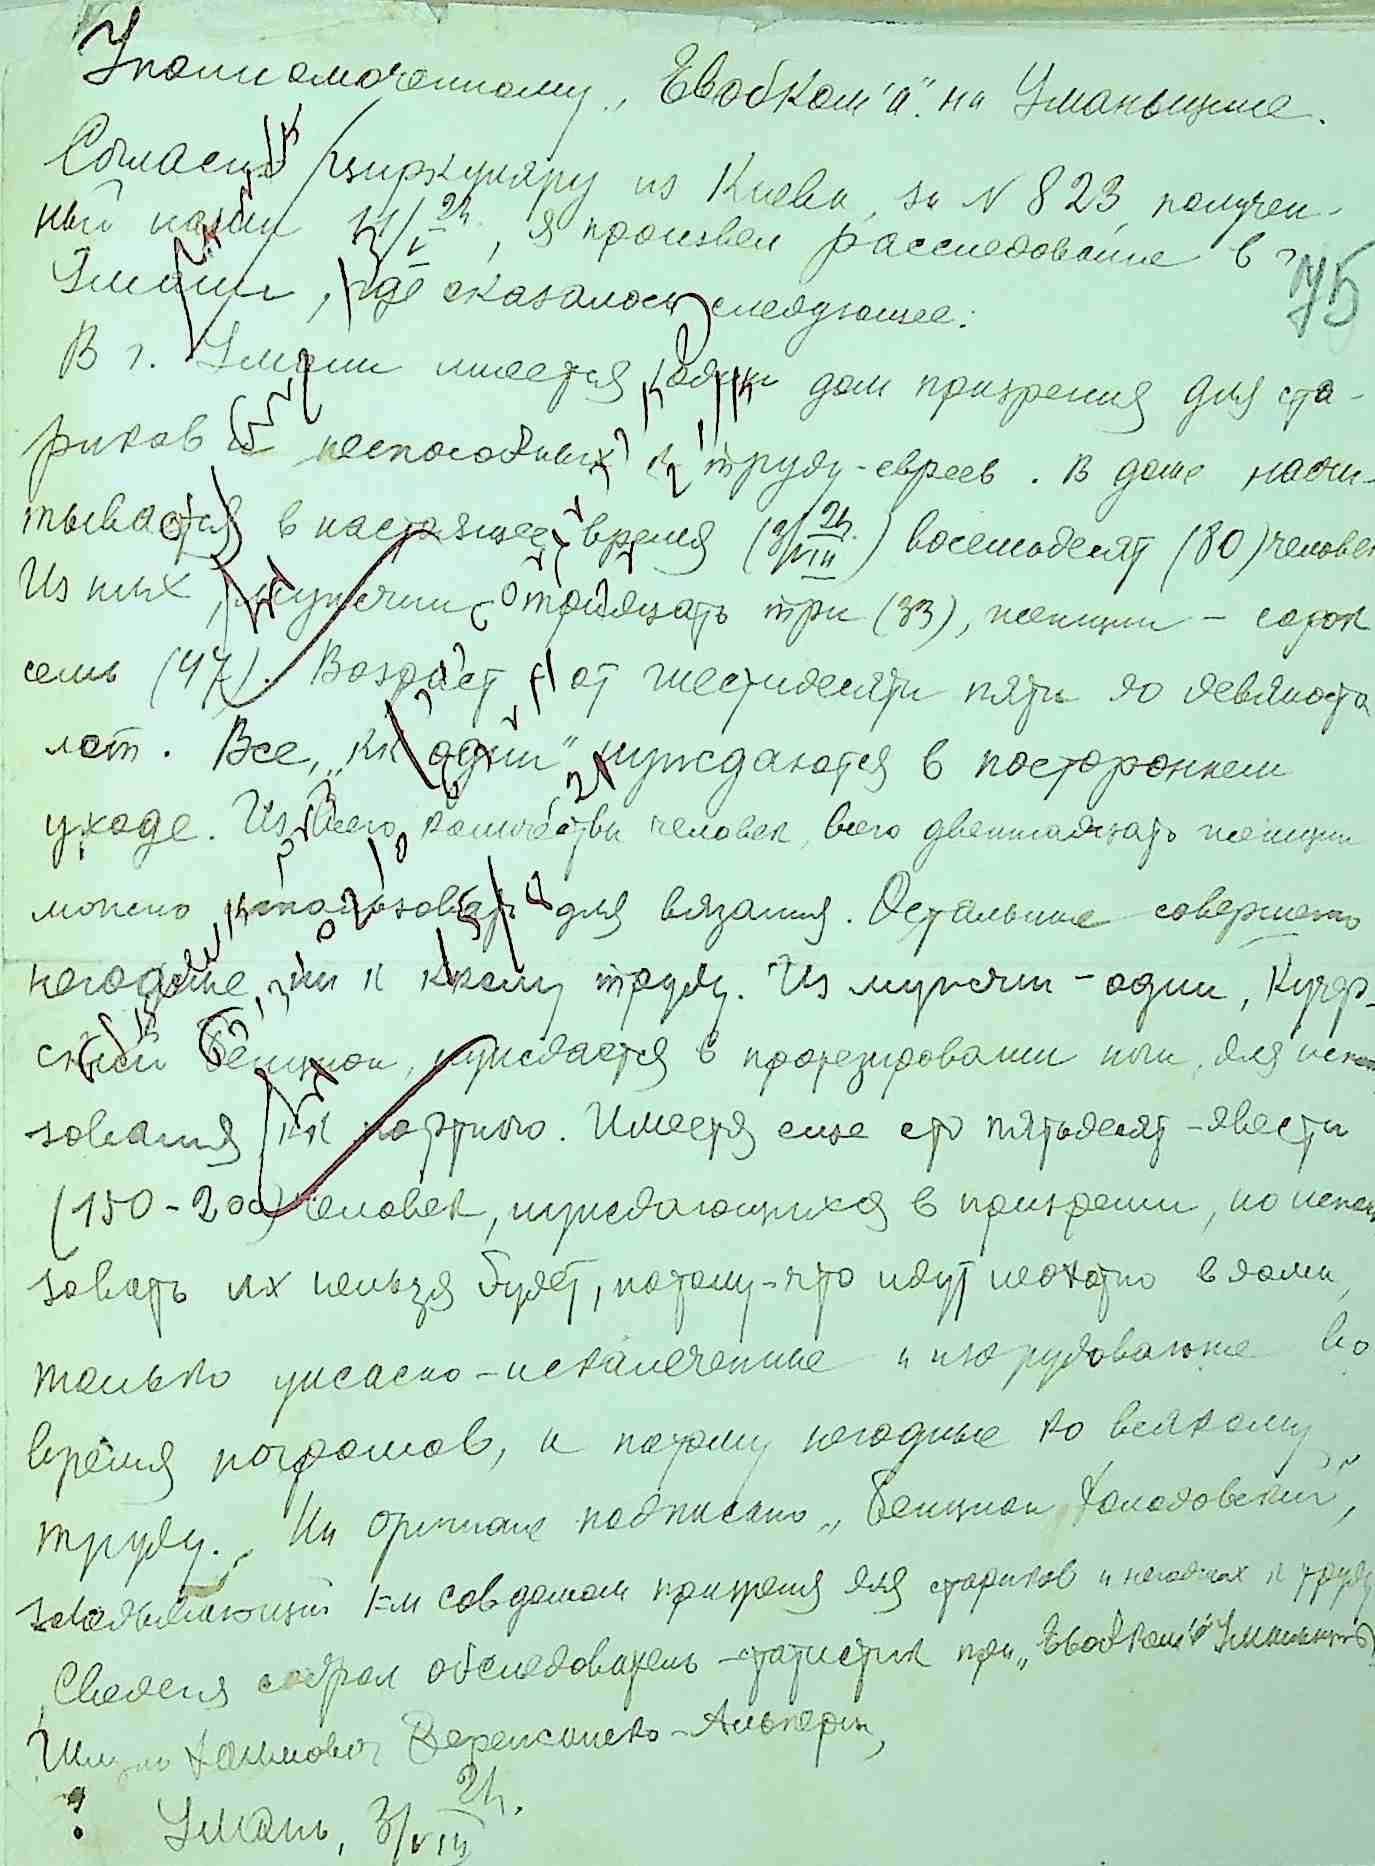 Уполномоченному „Евобком'а" на Уманьщине.
Согласно циркуляру из Киева, за N 823, получен-
ный нами, я произвел расследование в г.
75
Умани, где оказалось следующее:
В г. Умани имеется один дом призрения для ста-
риков и неспособных к труду-евреев. В доме насчи-
тывается в настоящее время (3/VIII 21.) восемьдесят (80) человек
Из них, мужчин - тридцать три (33), женщин - сорок
семь (47). Возраст от шестидесяти пяти до девяноста
лет. Все, „как один" нуждаются в постороннем
уходе. Из всего количества человек, всего двенадцать женщин
можно использовать для вязания. Остальные совершенно
негодные, ни к какому труду. Из мужчин - один, Кучер-
ский Бенцион, нуждается в протезировании ноги, для исполь
зования как портного. Имеется еще сто пятьдесят - двести
(150-200) человек, нуждающихся в призрении, но исполь
зовать их нельзя будет, потому-что идут неохотно в дома,
только ужасно-искалеченные и изуродованные во
время погромов, и потому негодные ко всякому
труду. На оригинале подписано „Бенцион
заведывающий домом призрения для стариков и негодных к труду
Сведения собрал обследователь-статистик при „Евобкоме"
Хаимович
Умань, 3/VIII 21.